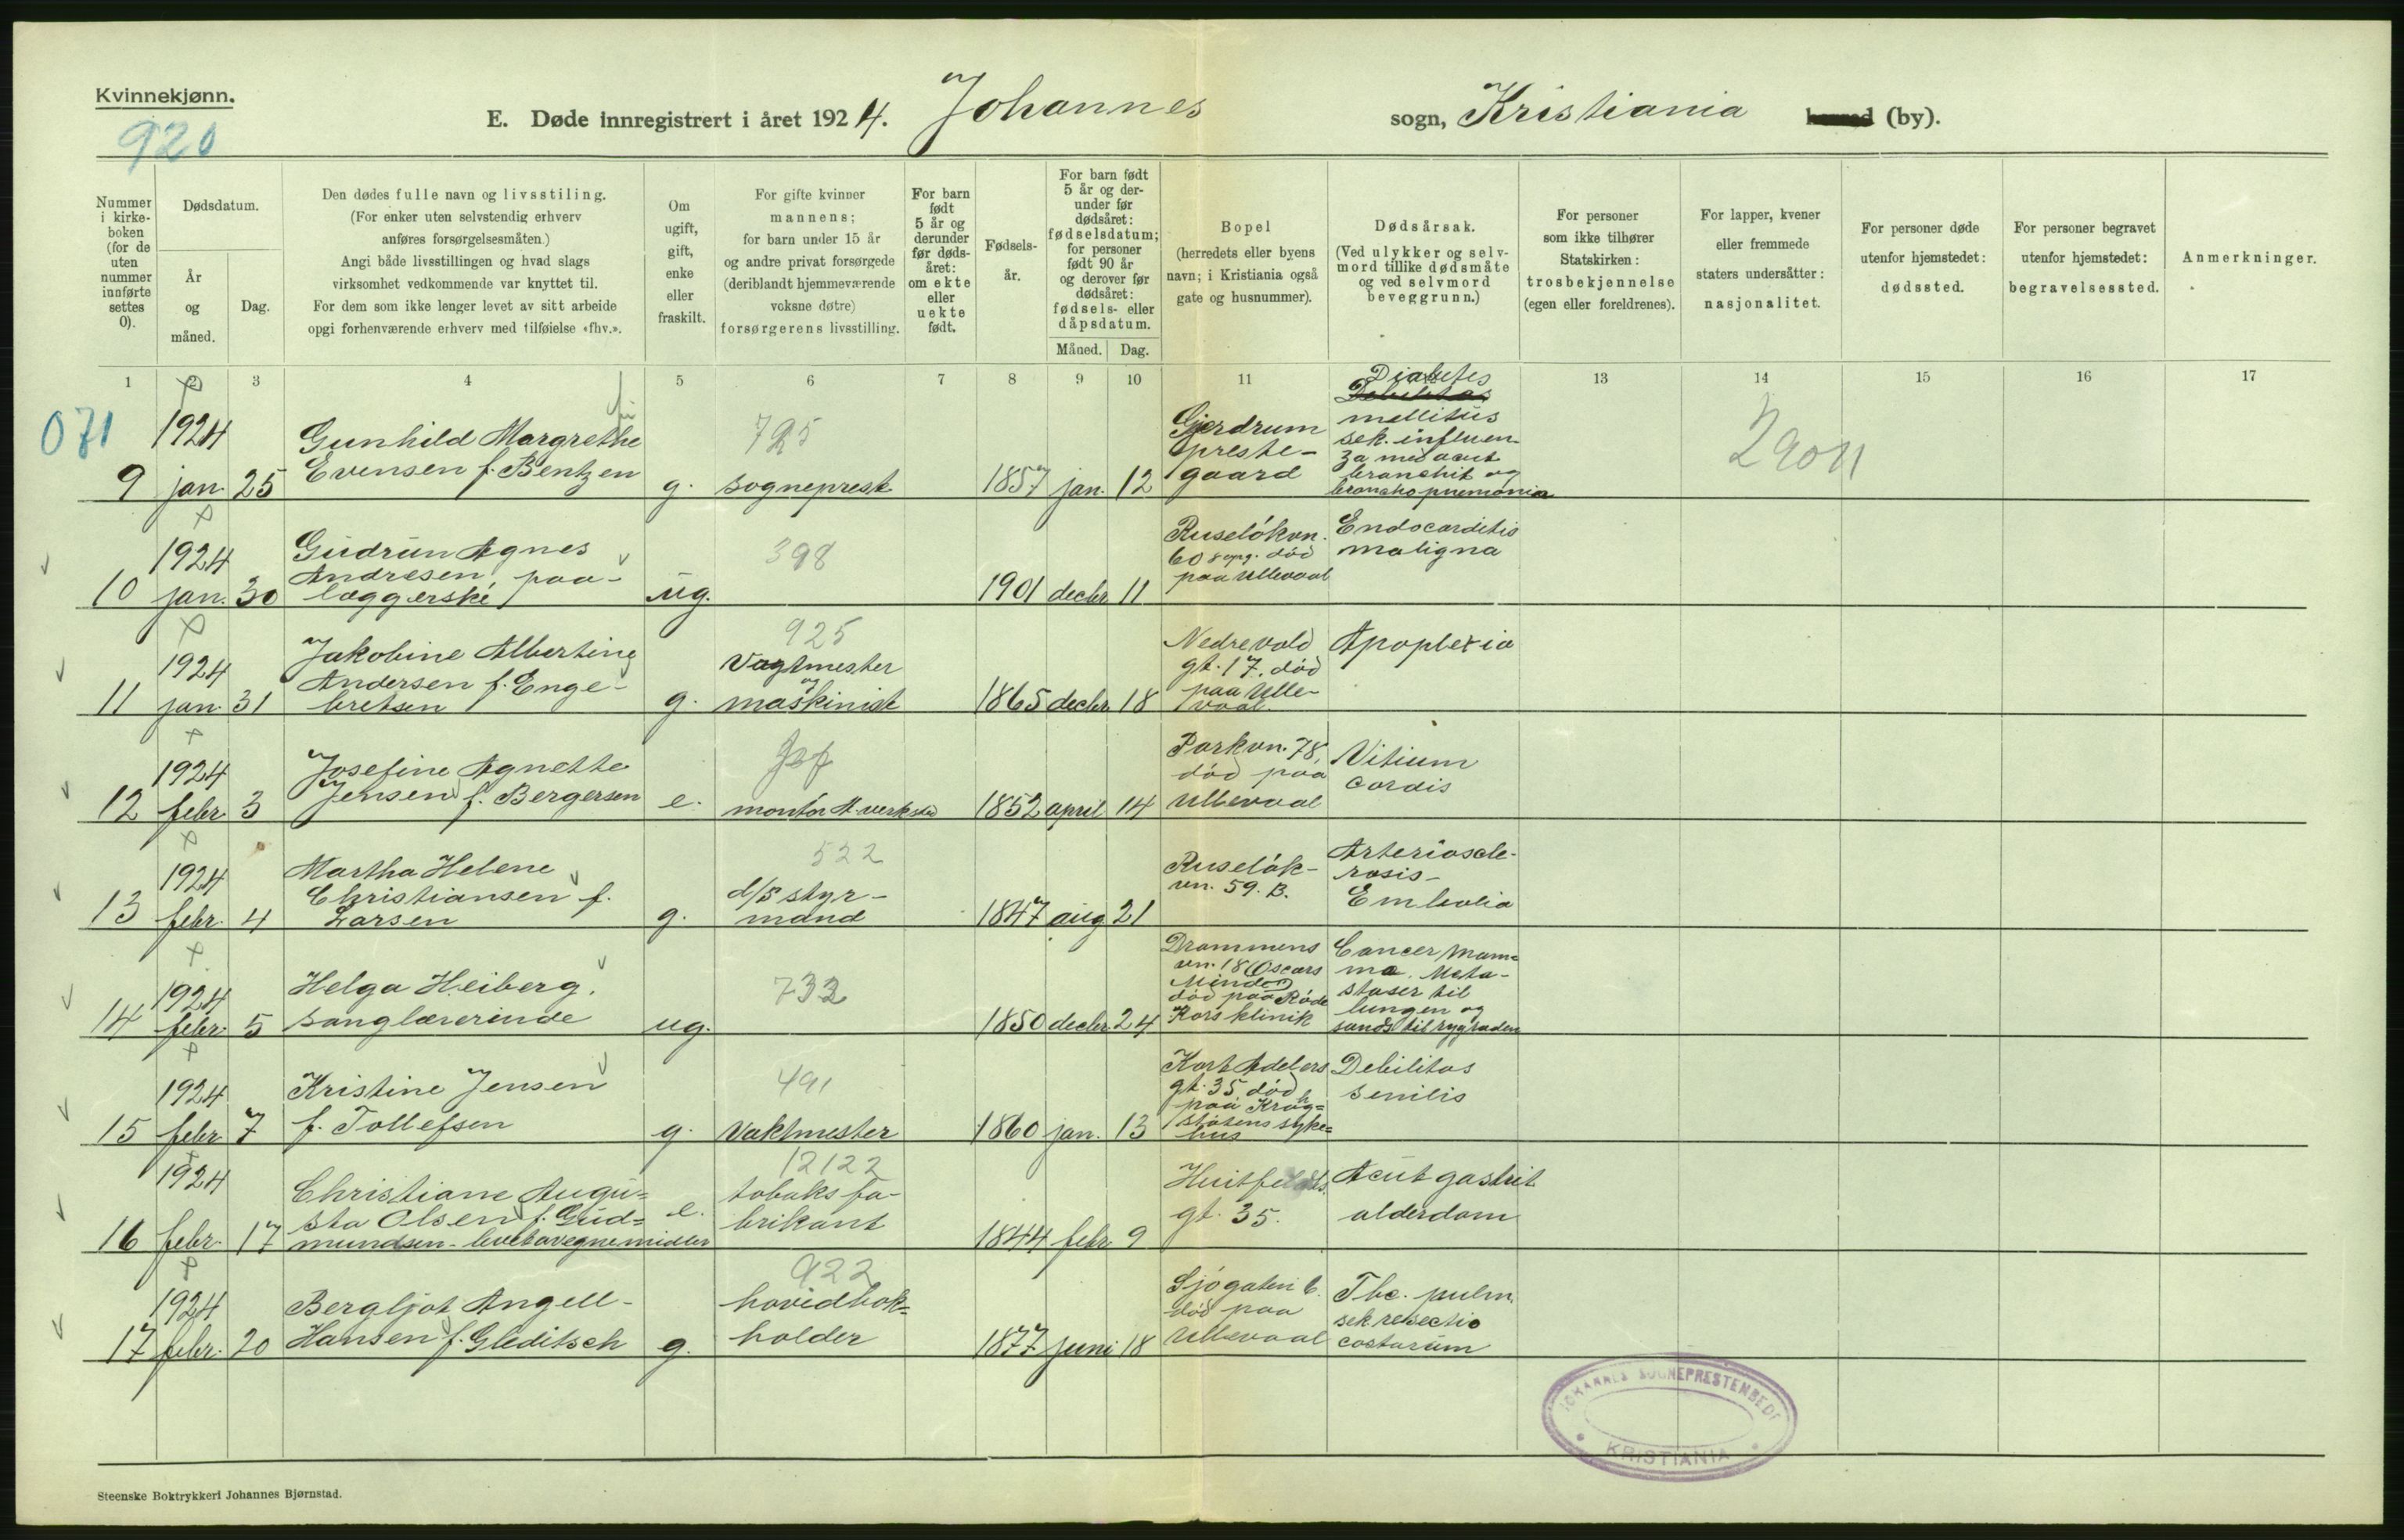 Kvinnekjønn.
920
E. Døde innregistrert i året 1924. Johannes sogn, Kristiania herred (by).
Nummer i kirkeboken (for de uten nummer innførte settes 0).
Dødsdatum.
År og måned.
Dag.
Den dødes fulle navn og livsstiling.
(For enker uten selvstendig erhverv
anføres forsørgelsesmåten.)
Angi både livsstillingen og hvad slags
virksomhet vedkommende var knyttet til.
For dem som ikke lenger levet av sitt arbeide
opgi forhenværende erhverv med tilføielse «fhv.».
Om ugift, gift, enke eller fraskilt.
For gifte kvinner
mannens;
for barn under 15 år
og andre privat forsørgede
(deriblandt hjemmeværende
voksne døtre)
forsørgerens livsstilling.
For barn født 5 år og derunder før dødsåret: om ekte eller uekte født.
Fødsels-
år.
For barn født
5 år og der-
under før
dødsåret:
fødselsdatum;
for personer
født 90 år
og derover før
dødsåret:
fødsels- eller
dåpsdatum.
Måned. Dag.
Bopel
(herredets eller byens
navn; i Kristiania også
gate og husnummer).
Dødsårsak.
(Ved ulykker og selv-
mord tillike dødsmåte
og ved selvmord
beveggrunn.)
For personer
som ikke tilhører
Statskirken:
trosbekjennelse
(egen eller foreldrenes).
For lapper, kvener
eller fremmede
staters undersåtter:
nasjonalitet.
For personer døde
utenfor hjemstedet:
dødssted.
For personer begravet
utenfor hjemstedet:
begravelsessted.
Anmerkninger.
1 2 3 4 5 6 7 8 9 10 11 13 14 15 16 17
071
9 1924 jan. 25
Gunhild Margrethe
Evensen f. Bentzen
g.
725
sogneprest
1857 jan. 12
Gjerdrum
preste-
gaard
Diabetes
Debilitas
mellitus
sek. influen-
za med acut
bronchit og
bronchopnemonia
2901
10 1924 jan. 30
Gudrun Agnes
Andresen, paa-
læggerske
ug.
398
1901 decbr. 11
Ruseløkvn.
60 8 opg. død
paa Ullevaal
Endocarditis
maligna
11 1924 jan. 31
Jakobine Albertine
Andersen f. Enge-
bretsen
g.
925
Vagtmester
og
maskinist
1865 decbr. 18
Nedrevold
gt. 17. død
paa Ulle-
vaal
Apoplexia
12 1924 febr. 3
Josefine Agnette
Jensen f. Bergersen
e.
montør A. verksted
1852 april 14
Parkvn. 78,
død paa
Ullevaal
Vitium
cordis
13 1924 febr. 4
Martha Helene
Christiansen f.
Larsen
g.
522
d/s styr-
mand
1847 aug. 21
Ruseløk-
vn. 59. B.
Arterioscle-
rosis-
Embolia
14 1924 febr. 5
Helga Heiberg,
sanglærerinde
ug.
732
1850 decbr. 24
Drammens
vn. 18 (Oscars
Minde)
død paa Røde
Kors klinik
Cancer Mam-
ma. Meta-
staser til
lungen og
sands til rygraden
15 1924 febr. 7
Kristine Jensen
f. Tollefsen
g.
491
Vaktmester
1860 jan. 13
Kort Adelers
gt. 35 død
paa Krogh-
støtens syke-
hus
Debilitas
senilis
16 1924 febr. 17
Christiane Augu-
sta Olsen f. Gud-
mundsen - levet av egne midler
e.
12122
tobaksfa-
brikant
1844 febr. 9
Huitfeldts
gt. 35.
Acut gastrit
alderdom
17 1924 febr. 20
Bergljot Angell-
Hansen f. Gleditsch
g.
922
hovedbok-
holder
1877 juni 18
Sjøgaten 6.
død paa
Ullevaal
Tbc. pulm.
sek resectio
costarum
JOHANNES SOGNEPRESTEMBEDE
KRISTIANIA
Steenske Boktrykkeri Johannes Bjørnstad.